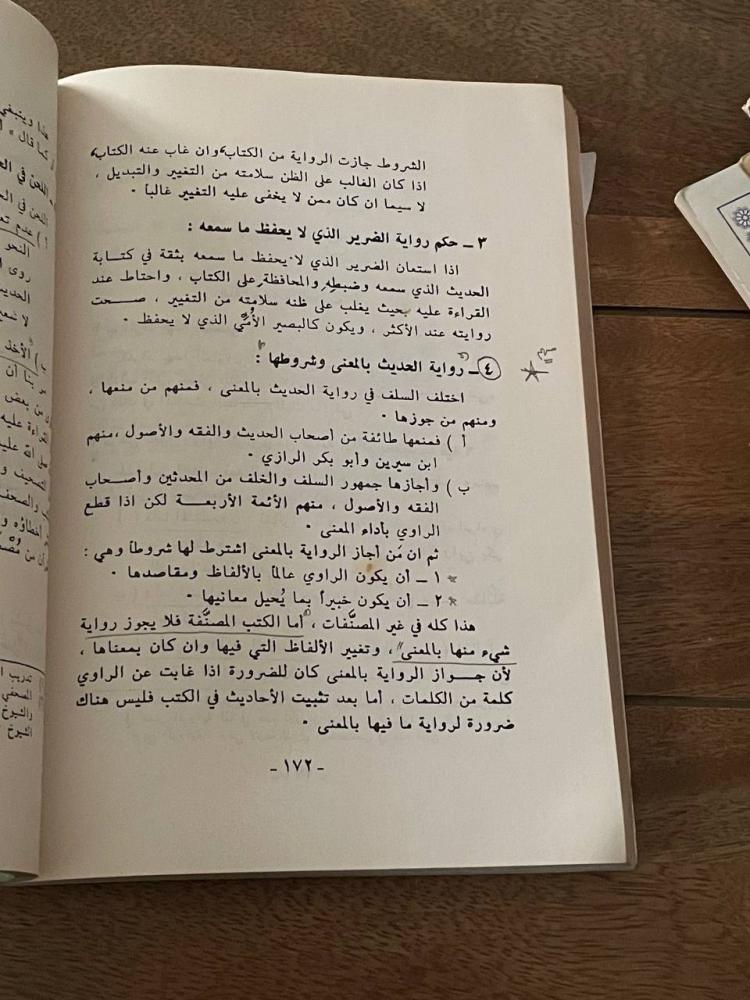 الشروط جازت الرواية من الكتاب، وان غاب عنه الكتاب،
اذا كان الغالب على الظن سلامته من التغيير والتبديل ،
لا سيما ان كان ممن لا يخفى عليه التغيير غالباً .
٣ ـ حكم رواية الضرير الذي لا يحفظ ما سمعه :
اذا استعان الضرير الذي لا يحفظ ما سمعه بثقة في كتابة
الحديث الذي سمعه وضبطه والمحافظة على الكتاب ، واحتاط عند
القراءة عليه بحيث يغلب على ظنه سلامته من التغيير ، صحت
روايته عند الأكثر ، ويكون كالبصير الأُمِّي الذي لا يحفظ .
٤ ـ رواية الحديث بالمعنى وشروطها :
اختلف السلف في رواية الحديث بالمعنى ، فمنهم من منعها ،
ومنهم من جوزها .
أ ) فمنعها طائفة من أصحاب الحديث والفقه والأصول ،منهم
ابن سيرين وأبو بكر الرازي .
ب ) وأجازها جمهور السلف والخلف من المحدثين وأصحاب
الفقه والأصول ، منهم الأئمة الأربعة لكن اذا قطع
الراوي بأداء المعنى .
ثم ان مَن أجاز الرواية بالمعنى اشترط لها شروطاً وهي :
١ ـ أن يكون الراوي عالماً بالألفاظ ومقاصدها .
٢ ـ أن يكون خبيراً بما يُحيل معانيها .
هذا كله في غير المصنَّفات ، أما الكتب المصنَّفة فلا يجوز رواية
شيء منها بالمعنى ، وتغيير الألفاظ التي فيها وان كان بمعناها ،
لأن جواز الرواية بالمعنى كان للضرورة اذا غابت عن الراوي
كلمة من الكلمات ، أما بعد تثبيت الأحاديث في الكتب فليس هناك
ضرورة لرواية ما فيها بالمعنى .
- ١٧٢ -